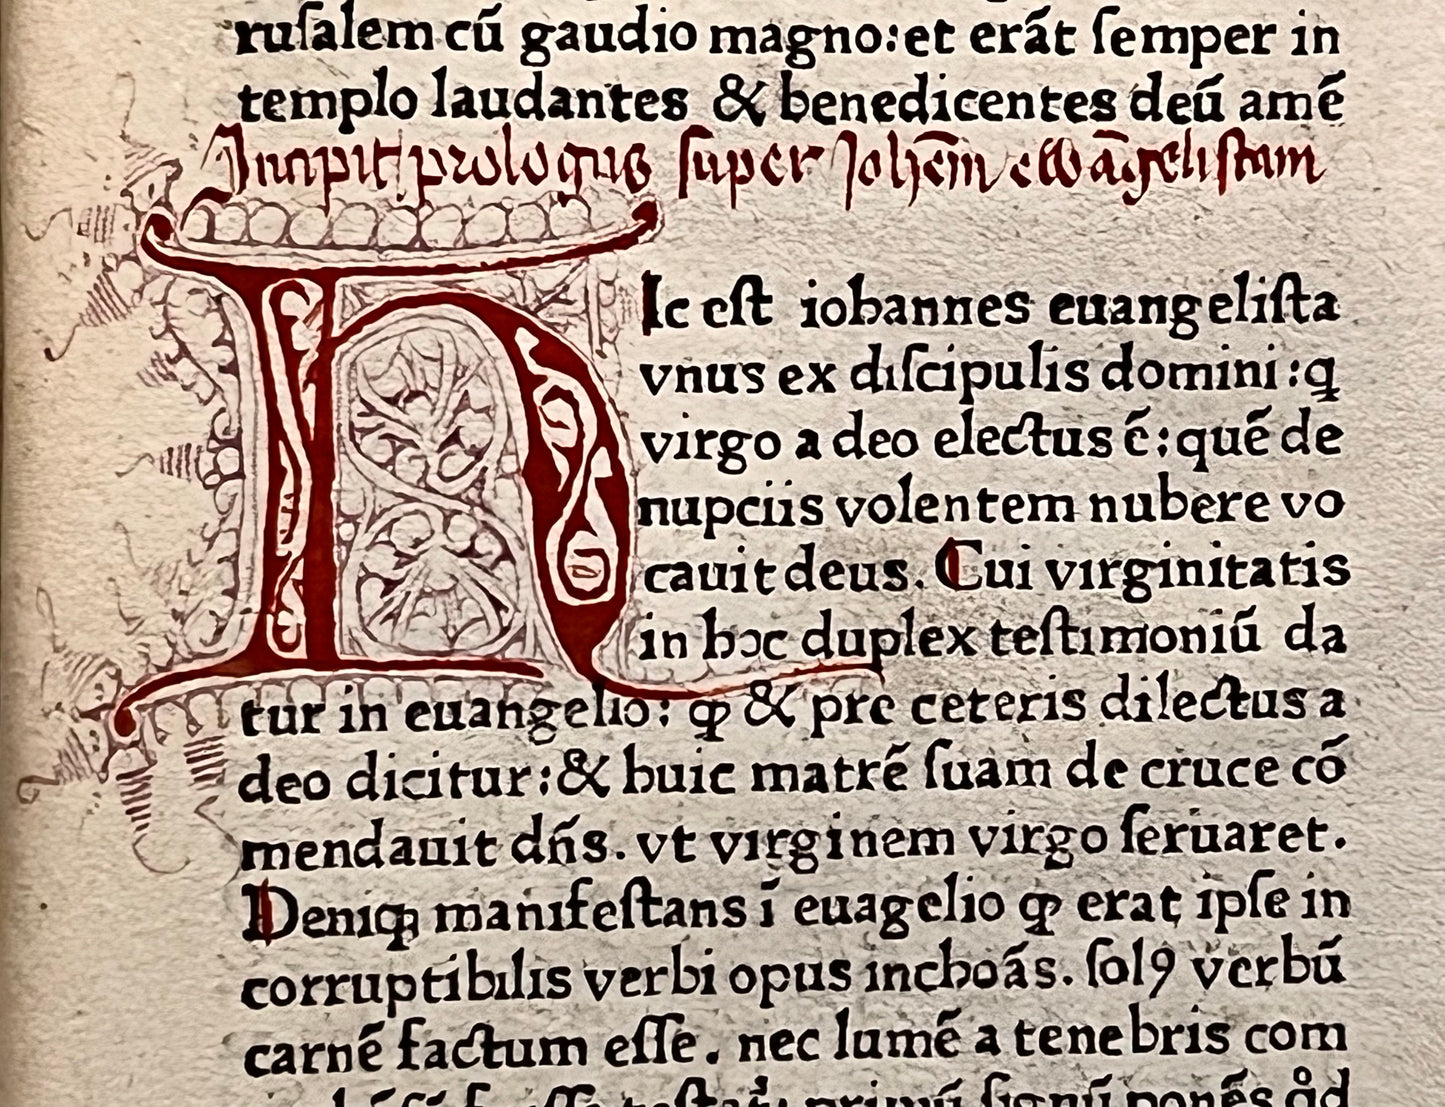 ruſalem cū gaudio magno: et erāt ſemper in
templo laudantes & benedicentes deū amē
Incipit prologus ſuper Johēm ewāgeliſtam
HIc eſt iohannes euangeliſta
vnus ex diſcipulis domini: ꝙ
virgo a deo electus ē: quē de
nupciis volentem nubere vo
cauit deus. Cui virginitatis
in hoc duplex teſtimoniū da
tur in euangelio: ꝙ & pre ceteris dilectus a
deo dicitur: & huic matrē ſuam de cruce cō
mendauit dn̄s. vt virginem virgo ſeruaret.
Deniqꝫ manifeſtans ī euāgelio ꝙ erat ipſe in
corruptibilis verbi opus inchoās. ſolꝰ verbū
carnē factum eſſe. nec lumē a tenebris com
primū ſignū ponēs